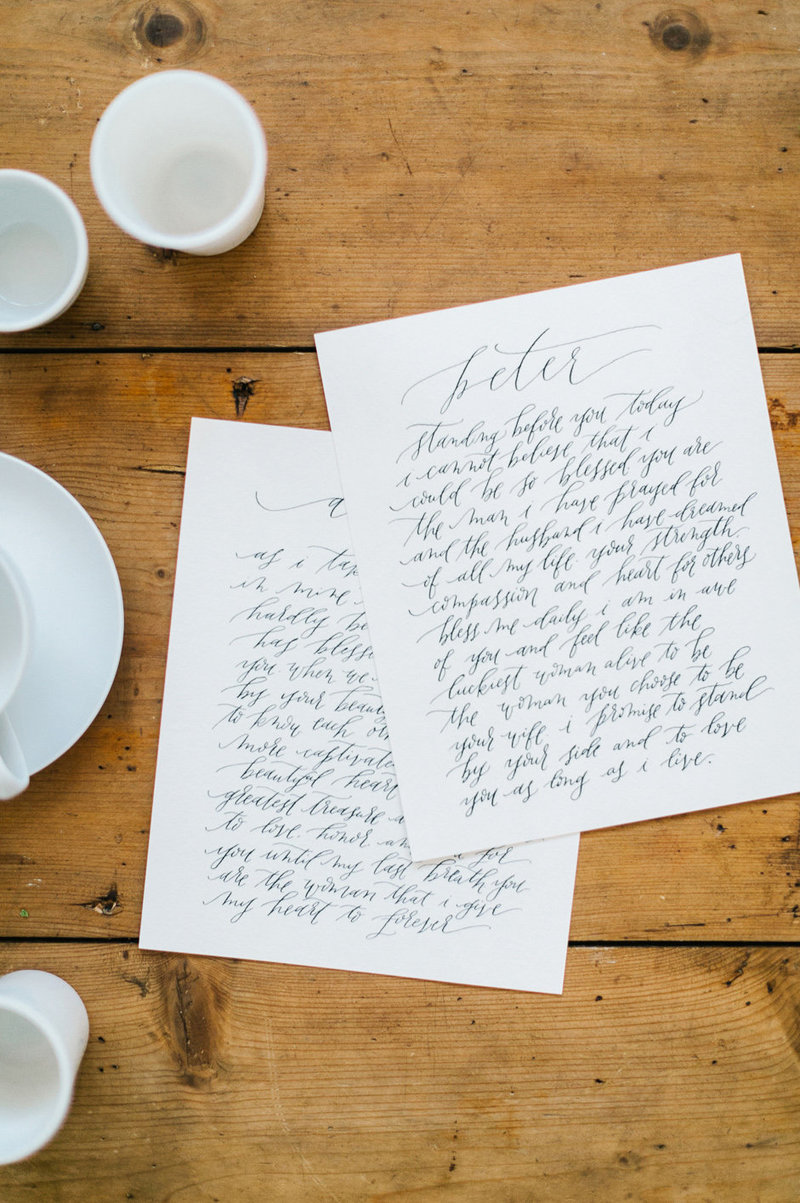 peter
standing before you today
i cannot believe that i
could be so blessed you are
the man i have prayed for
and the husband i have dreamed
of all my life. your strength
compassion and heart for others
bless me daily i am in awe
of you and feel like the
luckiest woman alive to be
the woman you choose to be
your wife i promise to stand
by your side and to love
you as long as i live.
a
as i tak
in mine
hardly be
has bless
you when we
by your beaut
to know each oth
more captivate
beautiful heart
greatest treasure
to love, honor an for
you until my last breath you
are the woman that i give
my heart to forever